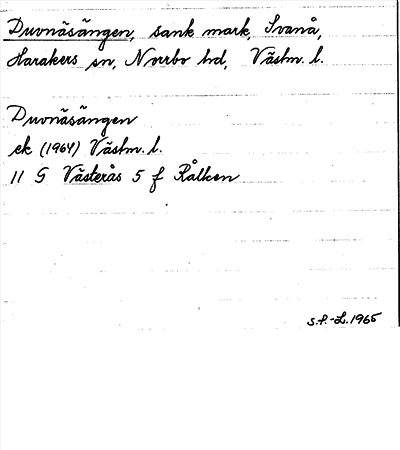 Duvnäsängen, sank mark, Svanå,
Harakers sn, Norrbo hd, Västm. l.
Duvnäsängen
ek (1964) Västm. l.
11 G Västerås 5 f Rålken
S.P.-L. 1965